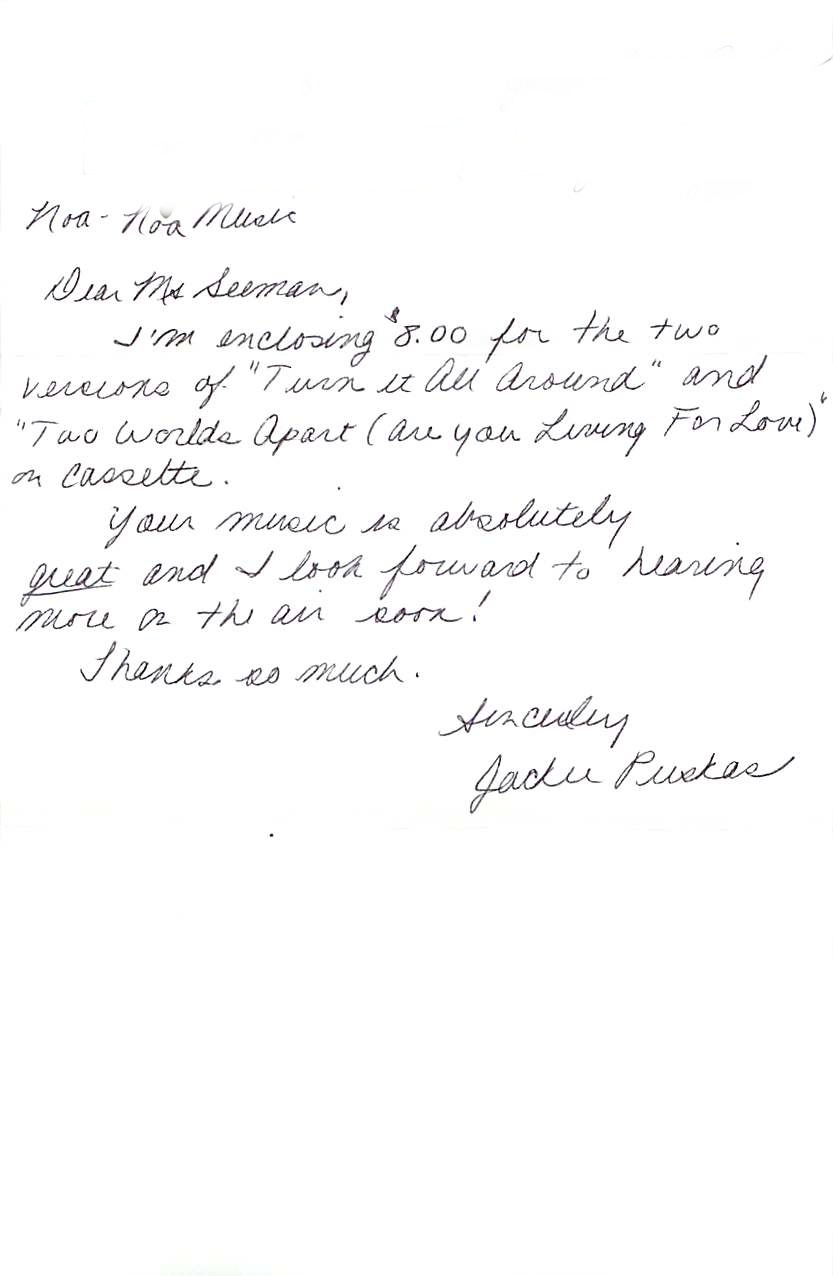 Noa-Noa Music
Dear Ms Seeman,
I'm enclosing $8.00 for the two
versions of "Turn it All Around" and
"Two Worlds Apart (Are you Living For Love)"
on cassette.
Your music is absolutely
great and I look forward to hearing
more on the air soon!
Thanks so much.
Sincerely
Jackie Puskas